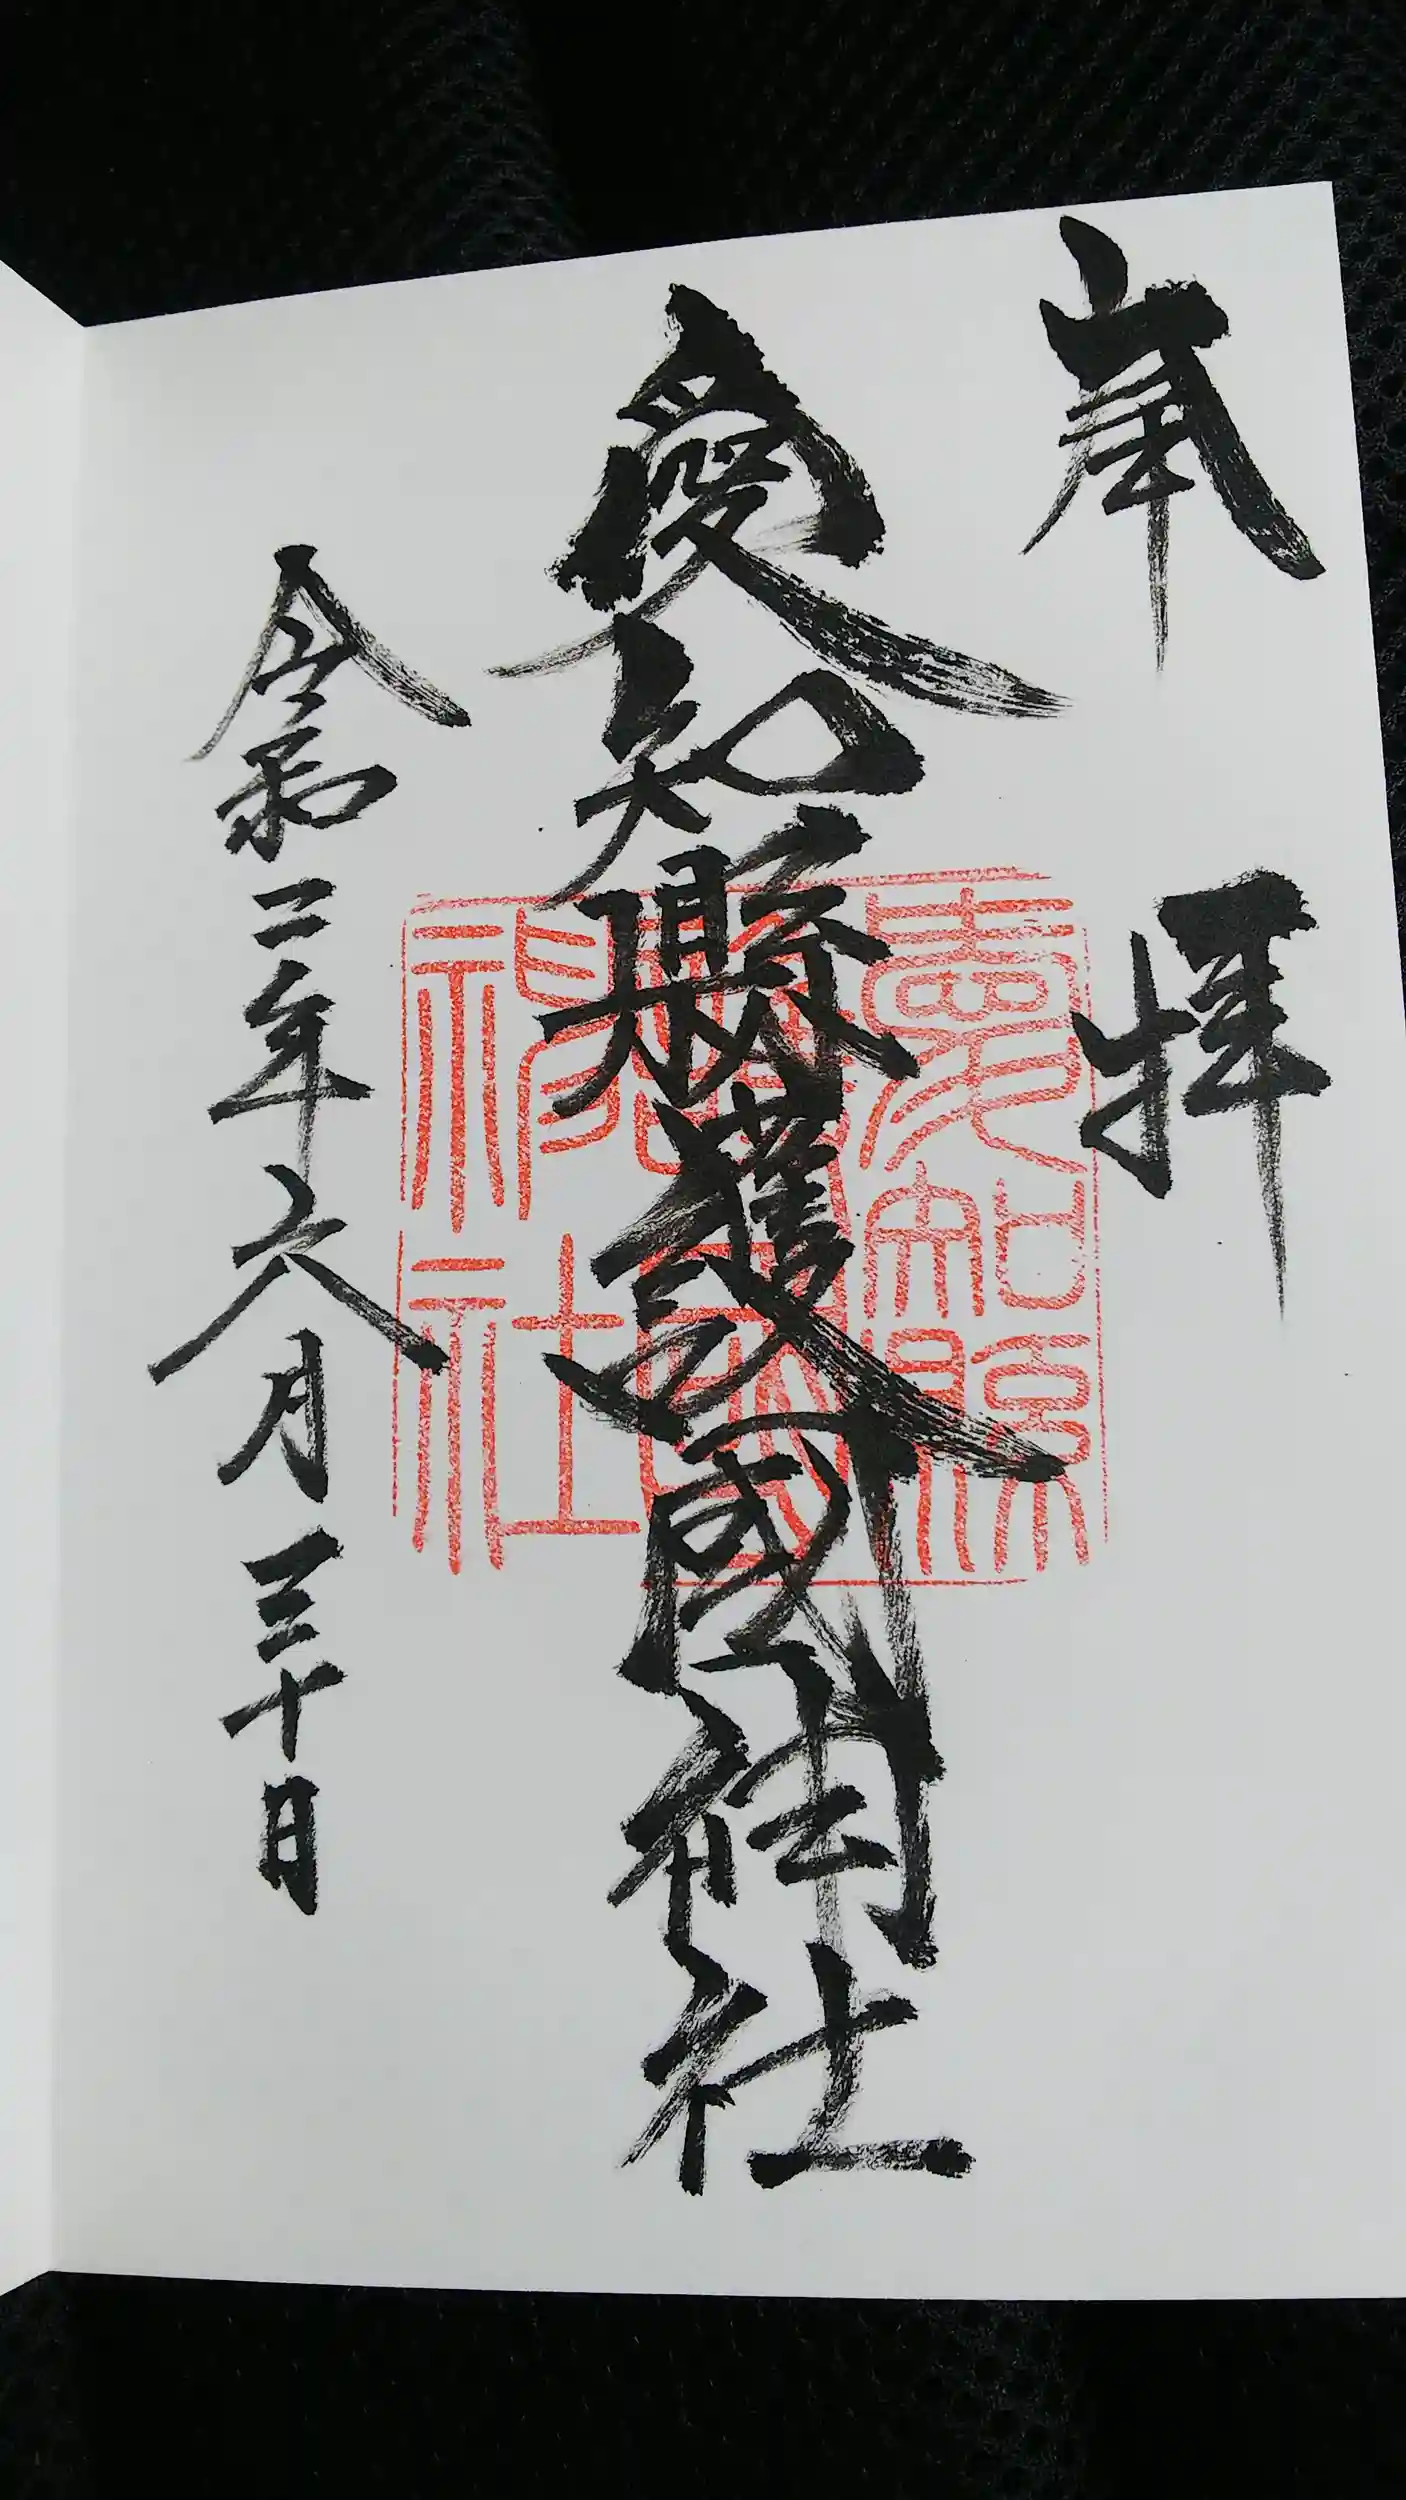 奉拝
愛知縣護國神社
愛知縣護國神社
令和二年六月三十日